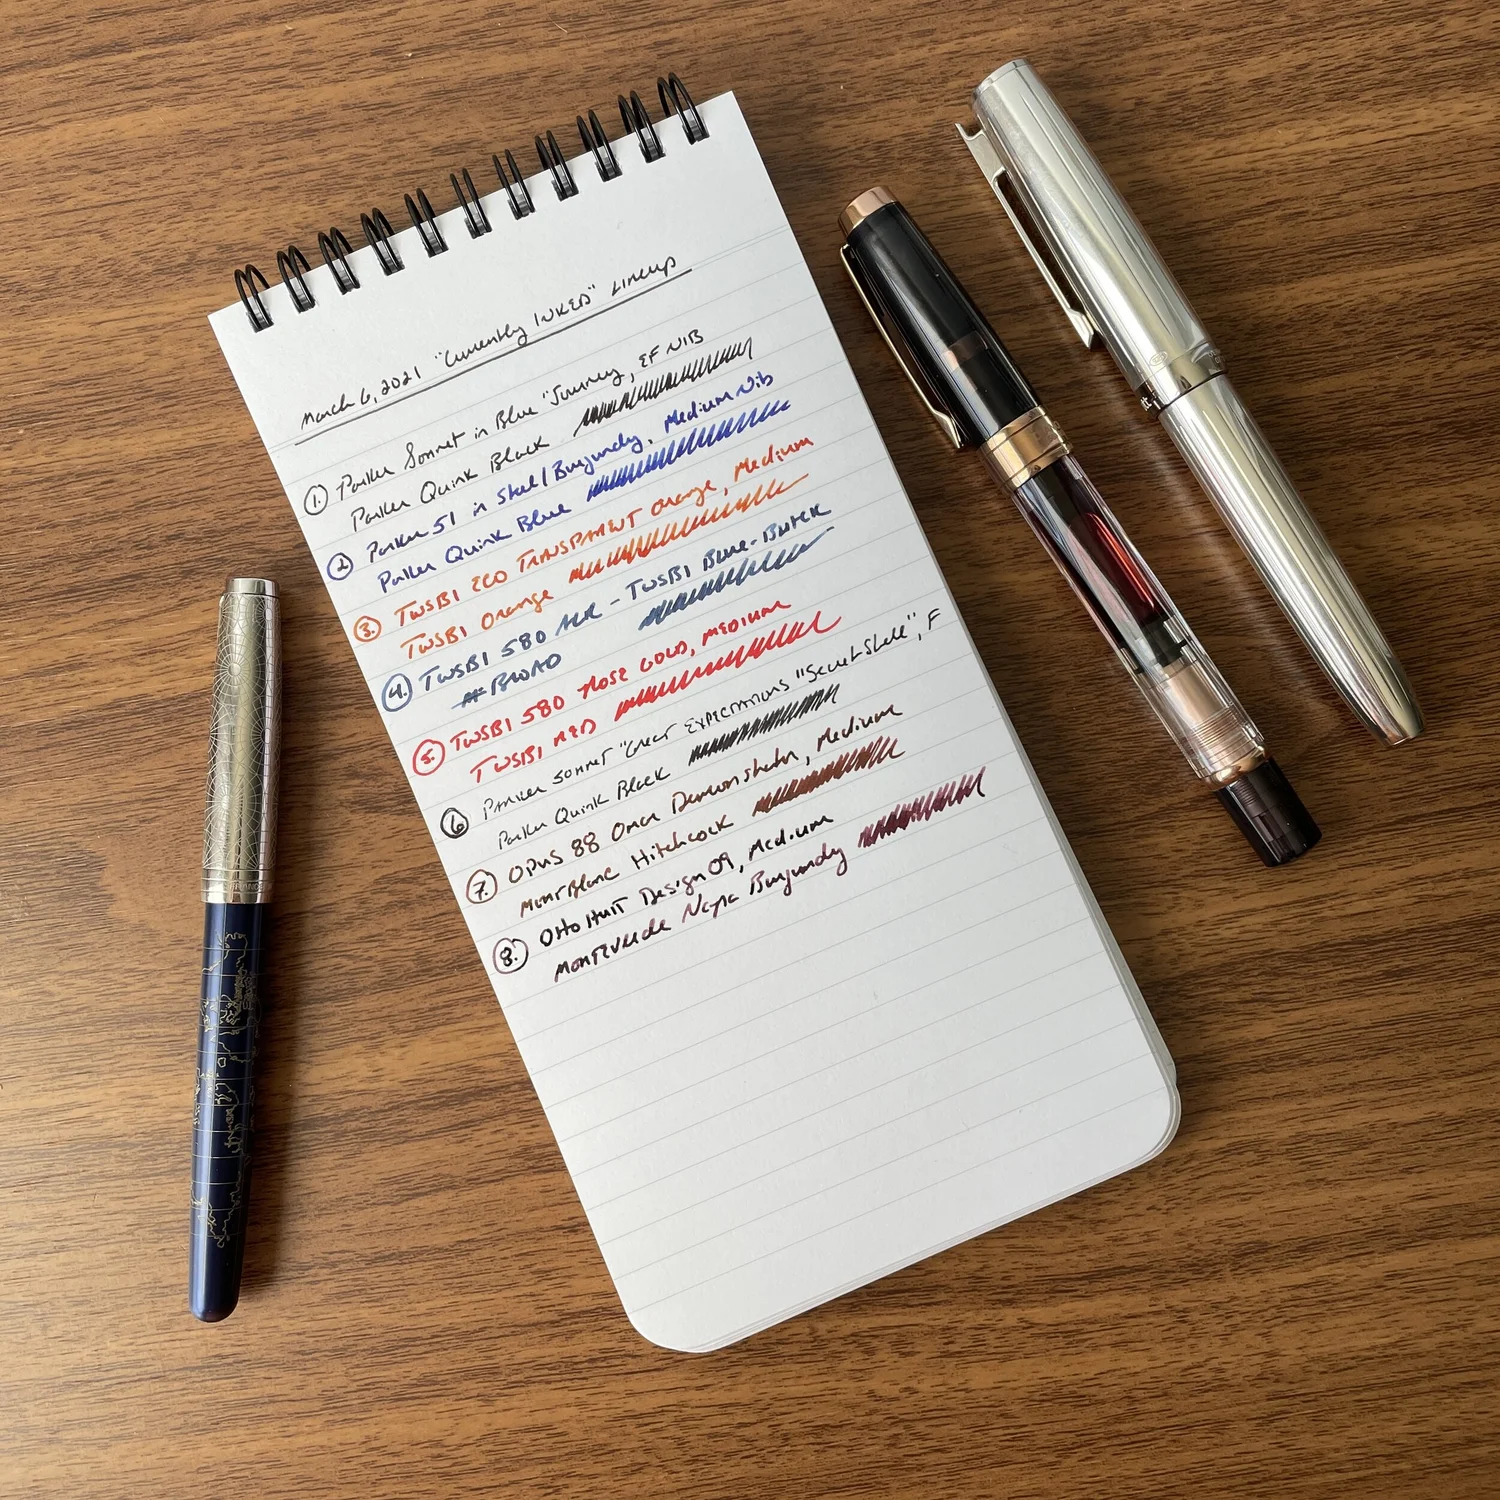 March 6, 2021 "Currently INKED" Lineup
1. Parker Sonnet in Blue "Journey, EF NIB
Parker Quink Black
2. Parker 51 in Steel/Burgundy, Medium Nib
Parker Quink Blue
3. TWSBI ECO TRANSPARENT Orange, Medium
TWSBI Orange
4. TWSBI 580 ALR - TWSBI Blue-Black
BROAD
5. TWSBI 580 ROSE GOLD, MEDIUM
TWSBI RED
6. PARKER SONNET "Great EXPECTATIONS "Secret Shell", F
Parker Quink Black
7. OPUS 88 Omar Demonstrator, Medium
MONTBLANC Hitchcock
8. Otto Hutt Design 09, Medium
MONTEVERDE Napa Burgundy